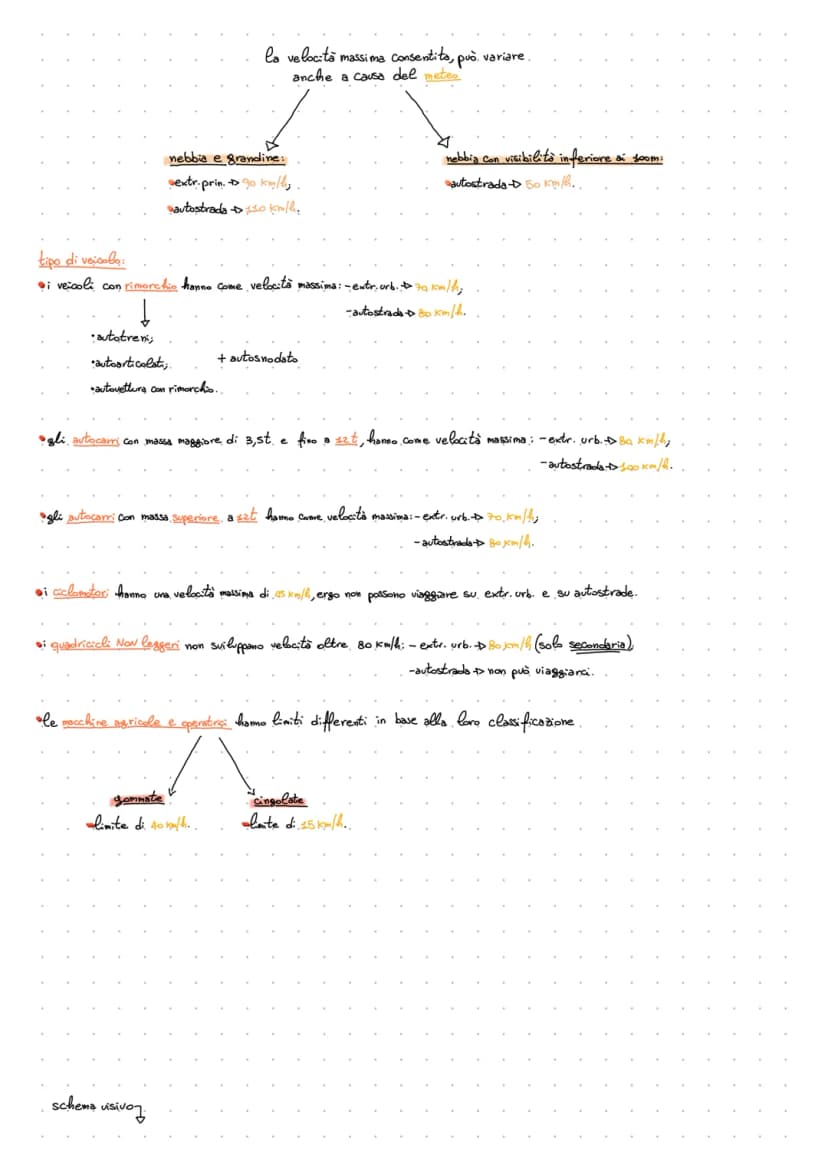 la velocità massima consentita, può variare
anche a causa del meteo
nebbia e grandine:
extr. prin. → 90 km/h;
autostrada → 110 km/h.
nebbia con visibilità inferiore ai 100m:
autostrada → 50 km/h.
tipo di veicolo:
•i veicoli con rimorchio hanno come velocità massima: - extr. urb. → 70 km/h;
- autostrada → 80 km/h.
•autotreni;
•autoarticolati;
+ autosnodato
•autovettura con rimorchio.
•gli autocarri con massa maggiore di 3,5t. e fino a 12t, hanno come velocità massima: - extr. urb. → 80 km/h;
- autostrada → 100 km/h.
•gli autocarri con massa superiore a 12t hanno come velocità massima: - extr. urb. → 70 km/h;
- autostrada → 80 km/h.
•i ciclomotori hanno una velocità massima di 45 km/h, ergo non possono viaggiare su extr. urb. e su autostrade.
•i quadricicli NON leggeri non sviluppano velocità oltre 80 km/h: - extr. urb. → 80 km/h (solo secondaria)
- autostrada → non può viaggiarci.
•le macchine agricole e operatrici hanno limiti differenti in base alla loro classificazione.
gommate
limite di 40 km/h.
cingolate
limite di 15 km/h.
schema visivo